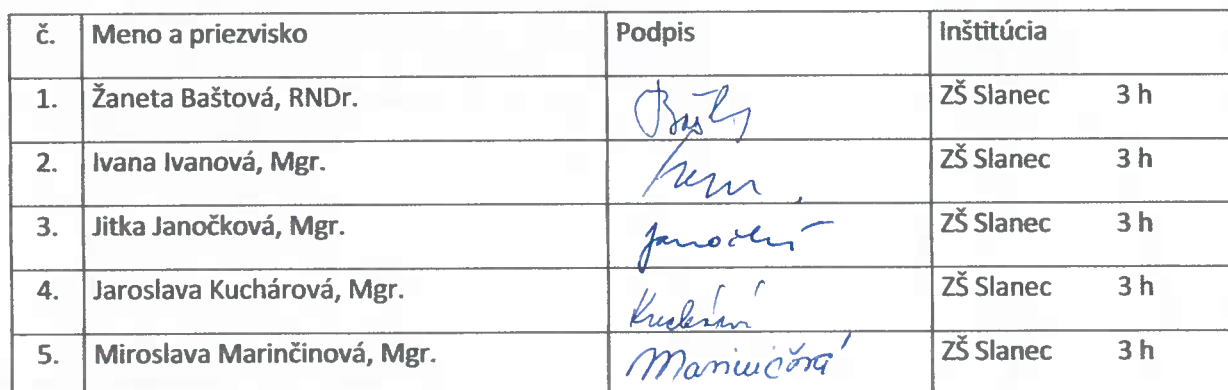 č. Meno a priezvisko Podpis Inštitúcia
1. Žaneta Baštová, RNDr. ZŠ Slanec 3 h
2. Ivana Ivanová, Mgr. ZŠ Slanec 3 h
3. Jitka Janočková, Mgr. ZŠ Slanec 3 h
4. Jaroslava Kuchárová, Mgr. ZŠ Slanec 3 h
5. Miroslava Marinčinová, Mgr. ZŠ Slanec 3 h